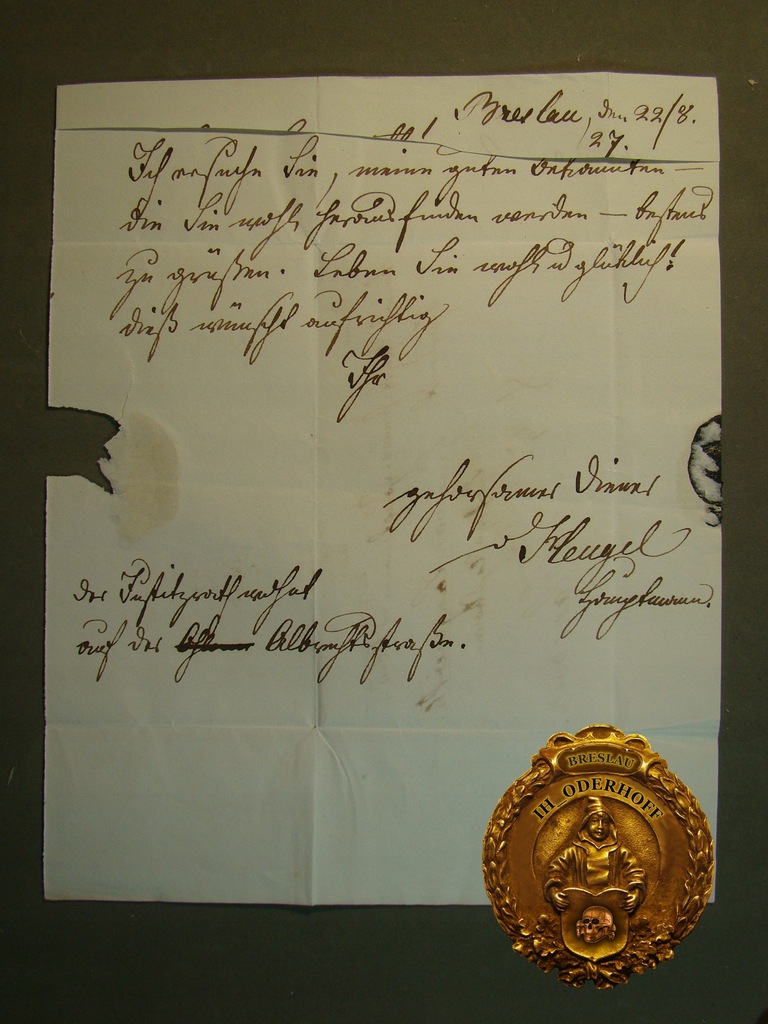 Breslau, den 22/8.
27.
Ich ersuche Sie, meine guten Bekannten —
die Sie wohl herausfinden werden — bestens
zu grüßen. Leben Sie wohl u glücklich!
dieß wünscht aufrichtig
Ihr
gehorsamer Diener
v Stengel
Hauptmann.
der Justitzrath wohnt
auf der Albrechtsstraße.
BRESLAU
IH_ODERHOFF